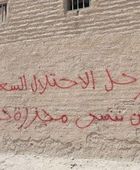 رحل الاحتلال السعو
ن ننسى مجزرة